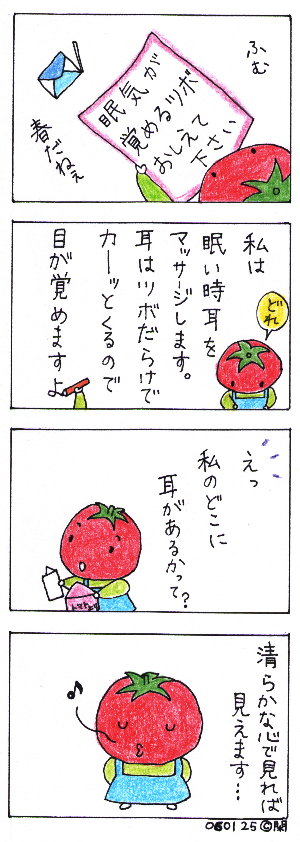 ふむ
眠気が
覚めるツボ
おしえて
下さい
春だねぇ
私は
眠い時耳を
マッサージします。
耳はツボだらけで
カーッとくるので
目が覚めますよ
どれ
えっ
私のどこに
耳があるかって?
清らかな心で見れば
見えます…
060125©関